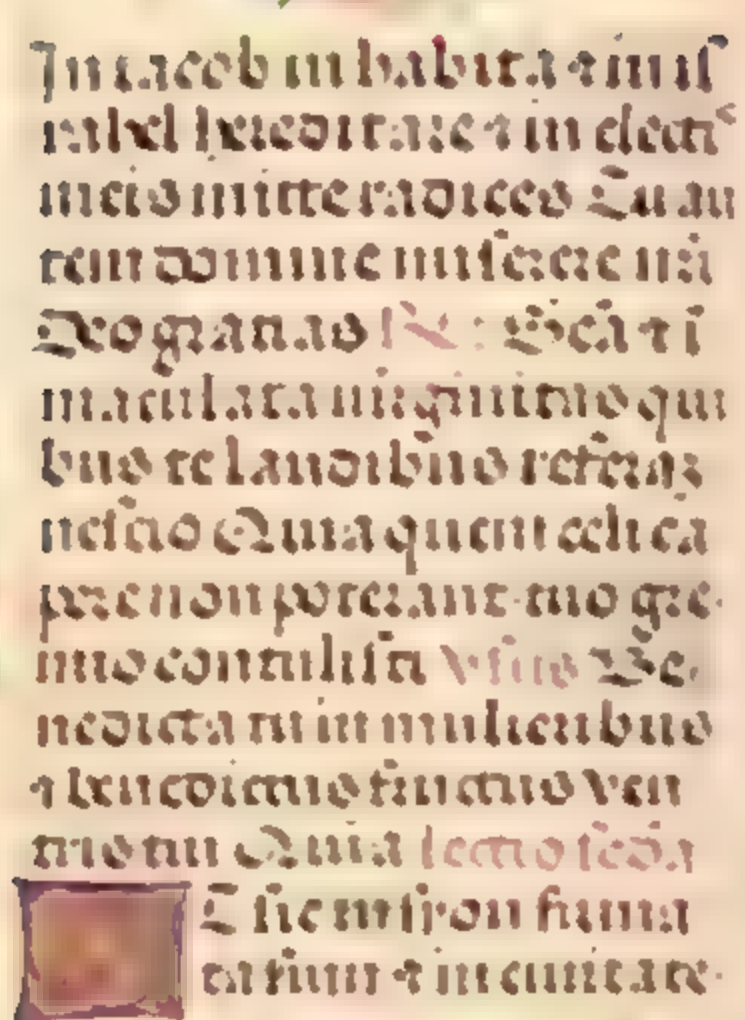 In iacob inhabita ⁊ in is
rahel hereditare ⁊ in elect
meis mitte radices Tu au
tem domine miserere n̄ri
Deo gratias R̄: Sc̄a ⁊ i
maculata virginitas qui
bus te laudibus referaz
nescio Quia quem celi ca
pere non poterant tuo gre
mio contulisti Versus Be
nedicta tu in mulieribus
⁊ benedictus fructus ven
tris tui Quia lectio sc̄da
Et sic in syon firma
ta sum ⁊ in ciuitate